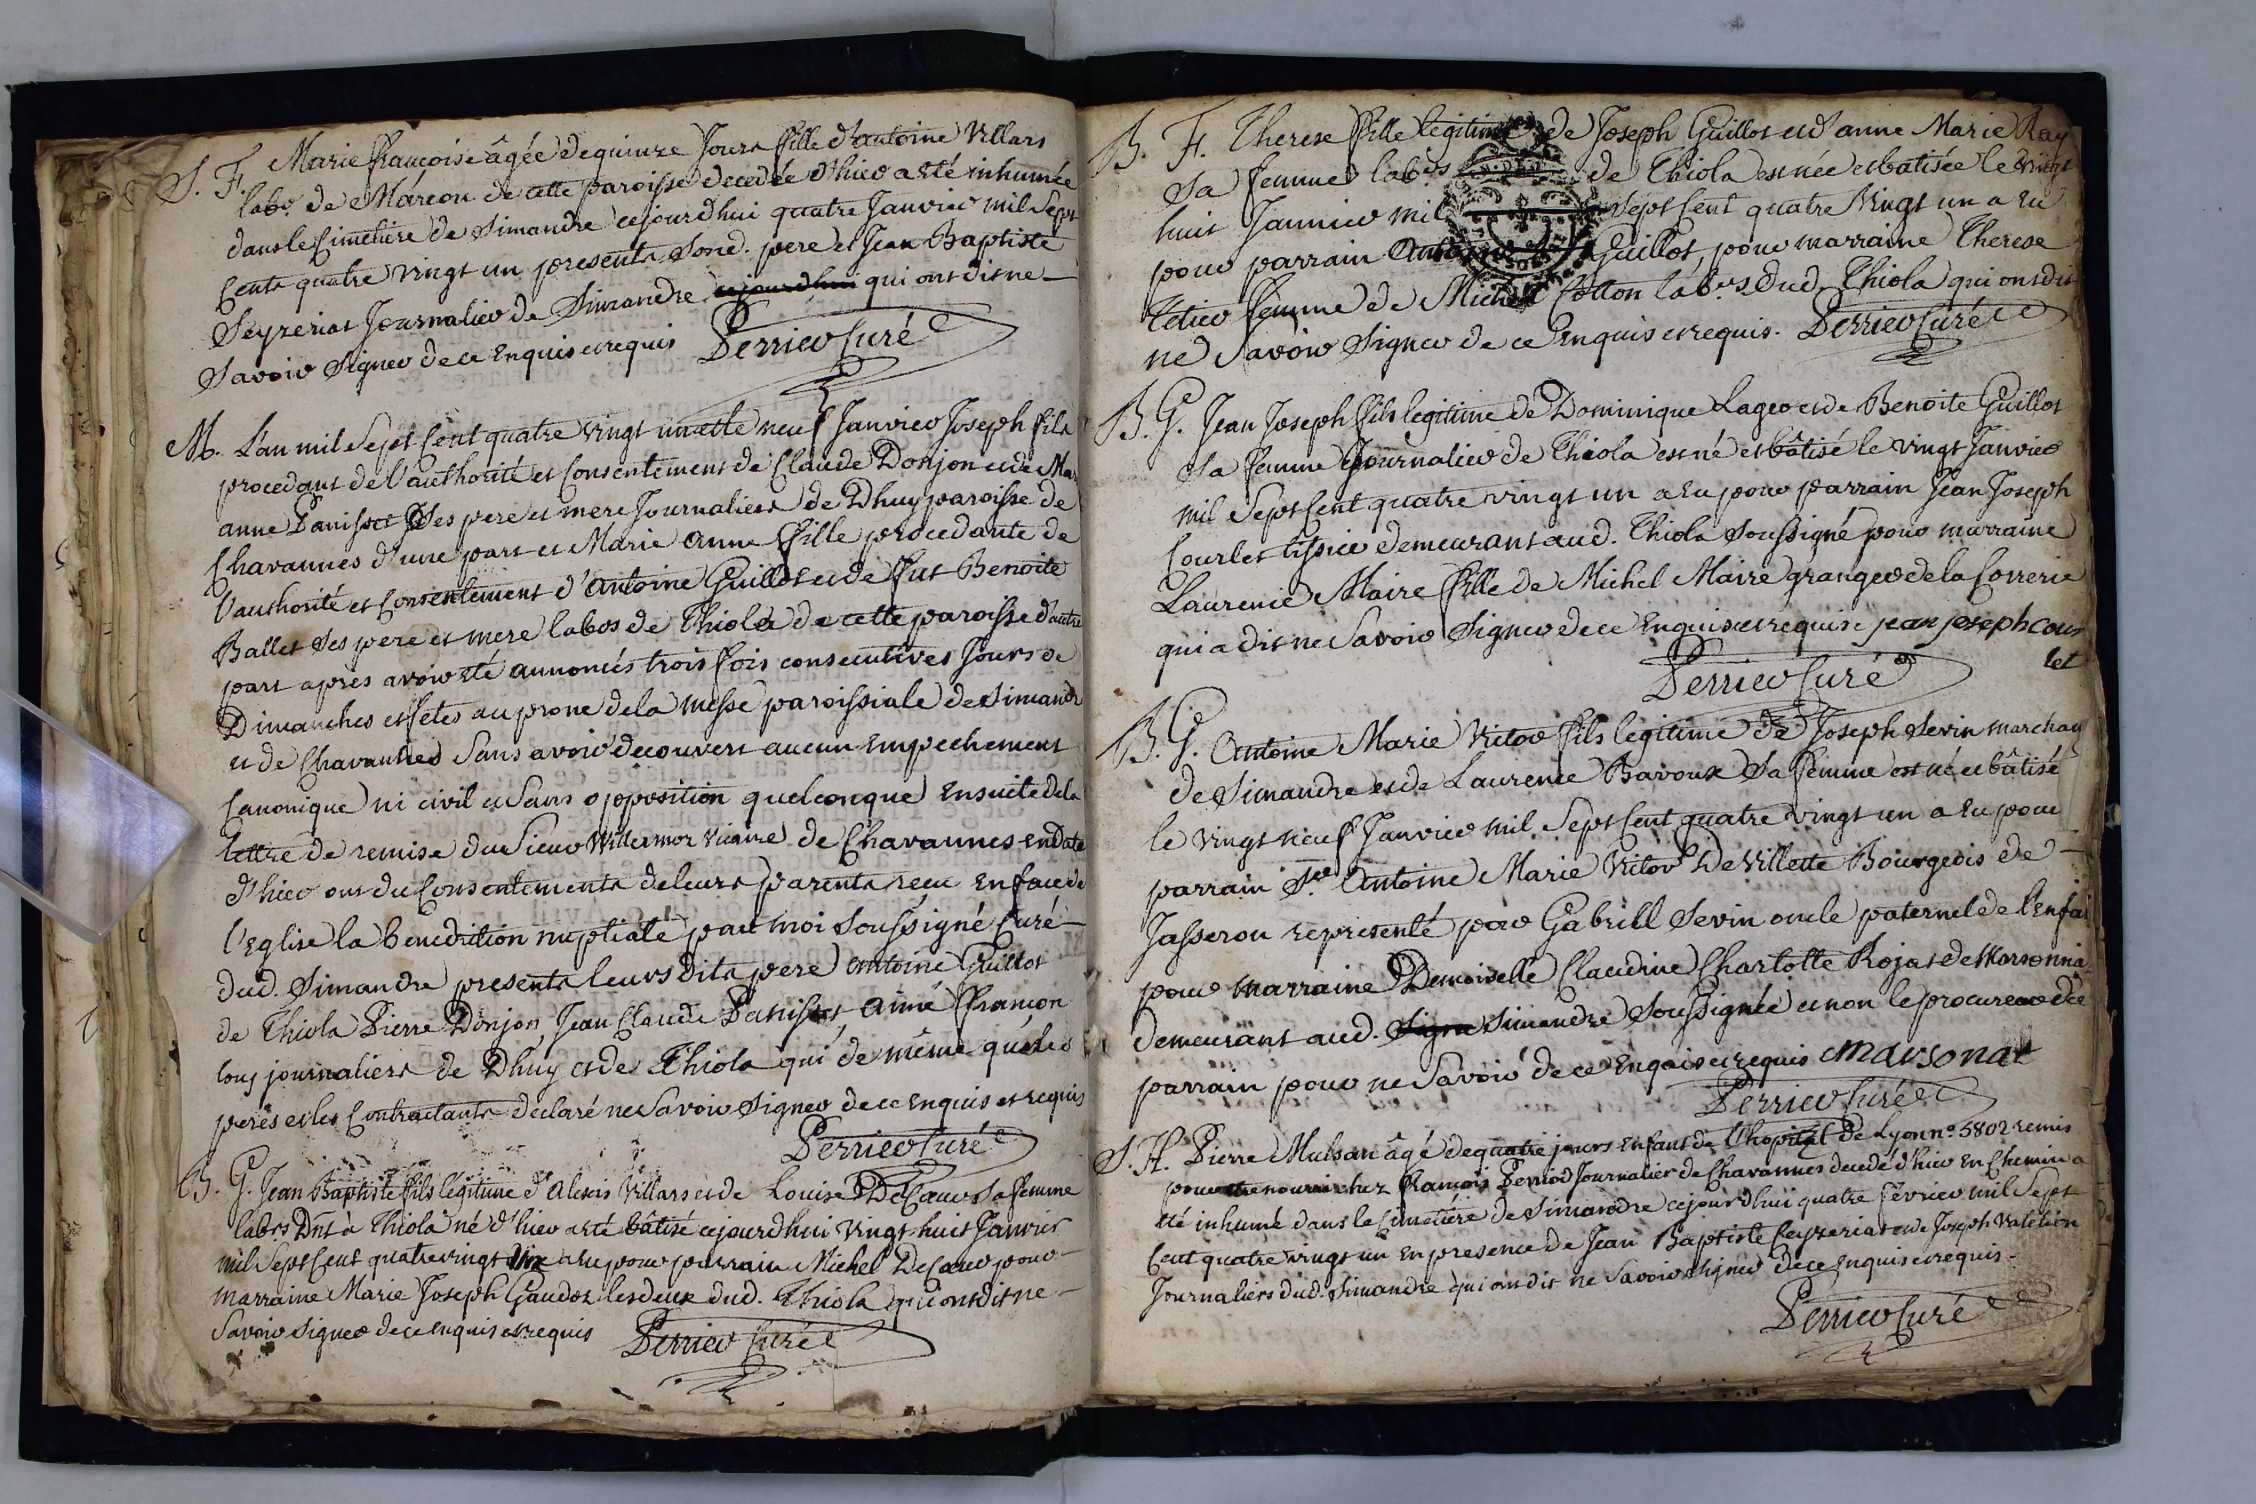 S. F. Marie françoise âgée de quinze Jours fille d'antoine Villars
labo.r de Marcon de cette paroisse decedée d'hier a été inhumée
dans le Cimetiere de Simandre cejourdhui quatre Janvier mil Sept
Cents quatre vingt un presents Sond. pere et Jean Baptiste
Seyzeriat Journalier de Simandre cejourdhui qui ont dit ne
Savoir Signer de ce Enquis et requis Perrier Curé
M. L'an mil Sept Cent quatre vingt un et le neuf Janvier Joseph fils
procedant de l'authorité et Consentement de Claude Donjon et de Mar
anne Panisset Ses pere et mere Journaliers de Dhuy paroisse de
Chavannes d'une part et Marie anne fille procedante de
l'authorité et Consentement d'antoine Guillot et de fut Benoite
Ballet Ses pere et mere labos de Thiola de cette paroisse d'autre
part après avoir été annoncés trois fois consecutives Jours de
Dimanches et fêtes au prone de la messe paroissiale de Simandre
et de Chavannes Sans avoir decouvert aucun Empechement
Canonique ni civil et Sans opposition quelconque Ensuite de la
lettre de remise du Sieur Willermoz Vicaire de Chavannes en date
d'hier ont du Consentements de leurs parents reçu En face de
l'Eglise la benediction nuptiale par moi Soussigné Curé
dud. Simandre presents leurs dits pere antoine Guillot
de Thiola Pierre Donjon Jean Claude Panisset aimé françon
tous journaliers de Dhuy et de Thiola qui de même que les
peres et les Contractants declaré ne Savoir Signer de ce Enquis et requis
Perrier Curé
B. G. Jean Baptiste fils légitime d'alexis Villars et de Louise DeCaur Sa femme
labo.rs Dnt à Thiola né d'hier a été bâtisé cejourdhui vingt huit Janvier
mil Sept Cent quatre vingt Un a eu pour parrain Michel DeCaur pour
marraine Marie Joseph Gaudoz les deux dud. Thiola qui ont dit ne
Savoir Signer de ce Enquis et requis Perrier Curé
B. F. Therese fille legitime de Joseph Guillot et d'anne Marie Ray
Sa femme labo.rs de Thiola est née et batisée le vingt
huit Janvier mil Sept Cent quatre Vingt un a eu
pour parrain Antoine Guillot, pour marraine Therese
Tetier femme de Michel Cotton labo.rs dud. Thiola qui ont dit
ne Savoir Signer de ce Enquis et requis. Perrier Curé
B. G. Jean Joseph fils legitime de Dominique Lager et de Benoite Guillot
Sa femme Journalier de Thiola est né et bâtisé le vingt Janvier
mil Sept Cent quatre vingt un a eu pour parrain Jean Joseph
Courlet tissier demeurant aud. Thiola Soussigné pour marraine
Laurence Maire fille de Michel Maire granger de la Correrie
qui a dit ne Savoir Signer de ce Enquis et requise jean joseph cour
let
Perrier Curé
B. G. Antoine Marie Victor fils legitime de Joseph Sevin marchan
de Simandre et de Laurence Bavoux Sa femme est né et bâtisé
le vingt neuf Janvier mil Sept Cent quatre vingt un a eu pour
parrain Sr. Antoine Marie Victor De Villette Bourgeois de
Jasseron representé par Gabriel Sevin oncle paternel de l'Enfan
pour marraine Demoiselle Claudine Charlotte Rojat de Marsonna
demeurant aud. Signe Simandre Soussignée et non le procureur du
parrain pour ne Savoir de ce Enquis et requis Marsonat
Perrier Curé
S. H. Pierre Mulsan âgé de quatre jours enfant de l'hopital de Lyon n.o 5802 remis
pour être nourri chez François Perriod Journalier de Chavannes decedé d'hier En chemin a
été inhumé dans le Cimetiére de Simandre cejourdhui quatre fevrier mil Sept
Cent quatre vingt un En presence de Jean Baptiste Ceyzeriat et de Joseph Vatelien
Journaliers dud. Simandre qui ont dit ne Savoir Signer de ce Enquis et requis
Perrier Curé